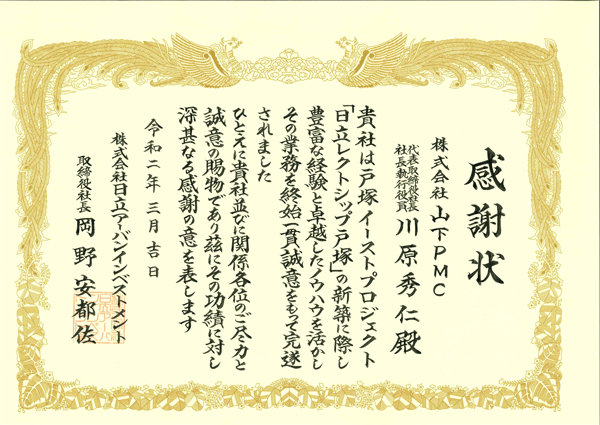 感謝状
株式会社 山下PMC
代表取締役社長
社長執行役員
川原秀仁殿
貴社は戸塚イーストプロジェクト
「日立レクトシップ戸塚」の新築に際し
豊富な経験と卓越したノウハウを活かし
その業務を終始一貫誠意をもって完遂
されました
ひとえに貴社並びに関係各位のご尽力と
誠意の賜物であり茲にその功績に対し
深甚なる感謝の意を表します
令和二年三月吉日
株式会社日立アーバンインベストメント
取締役社長 岡野安都佐